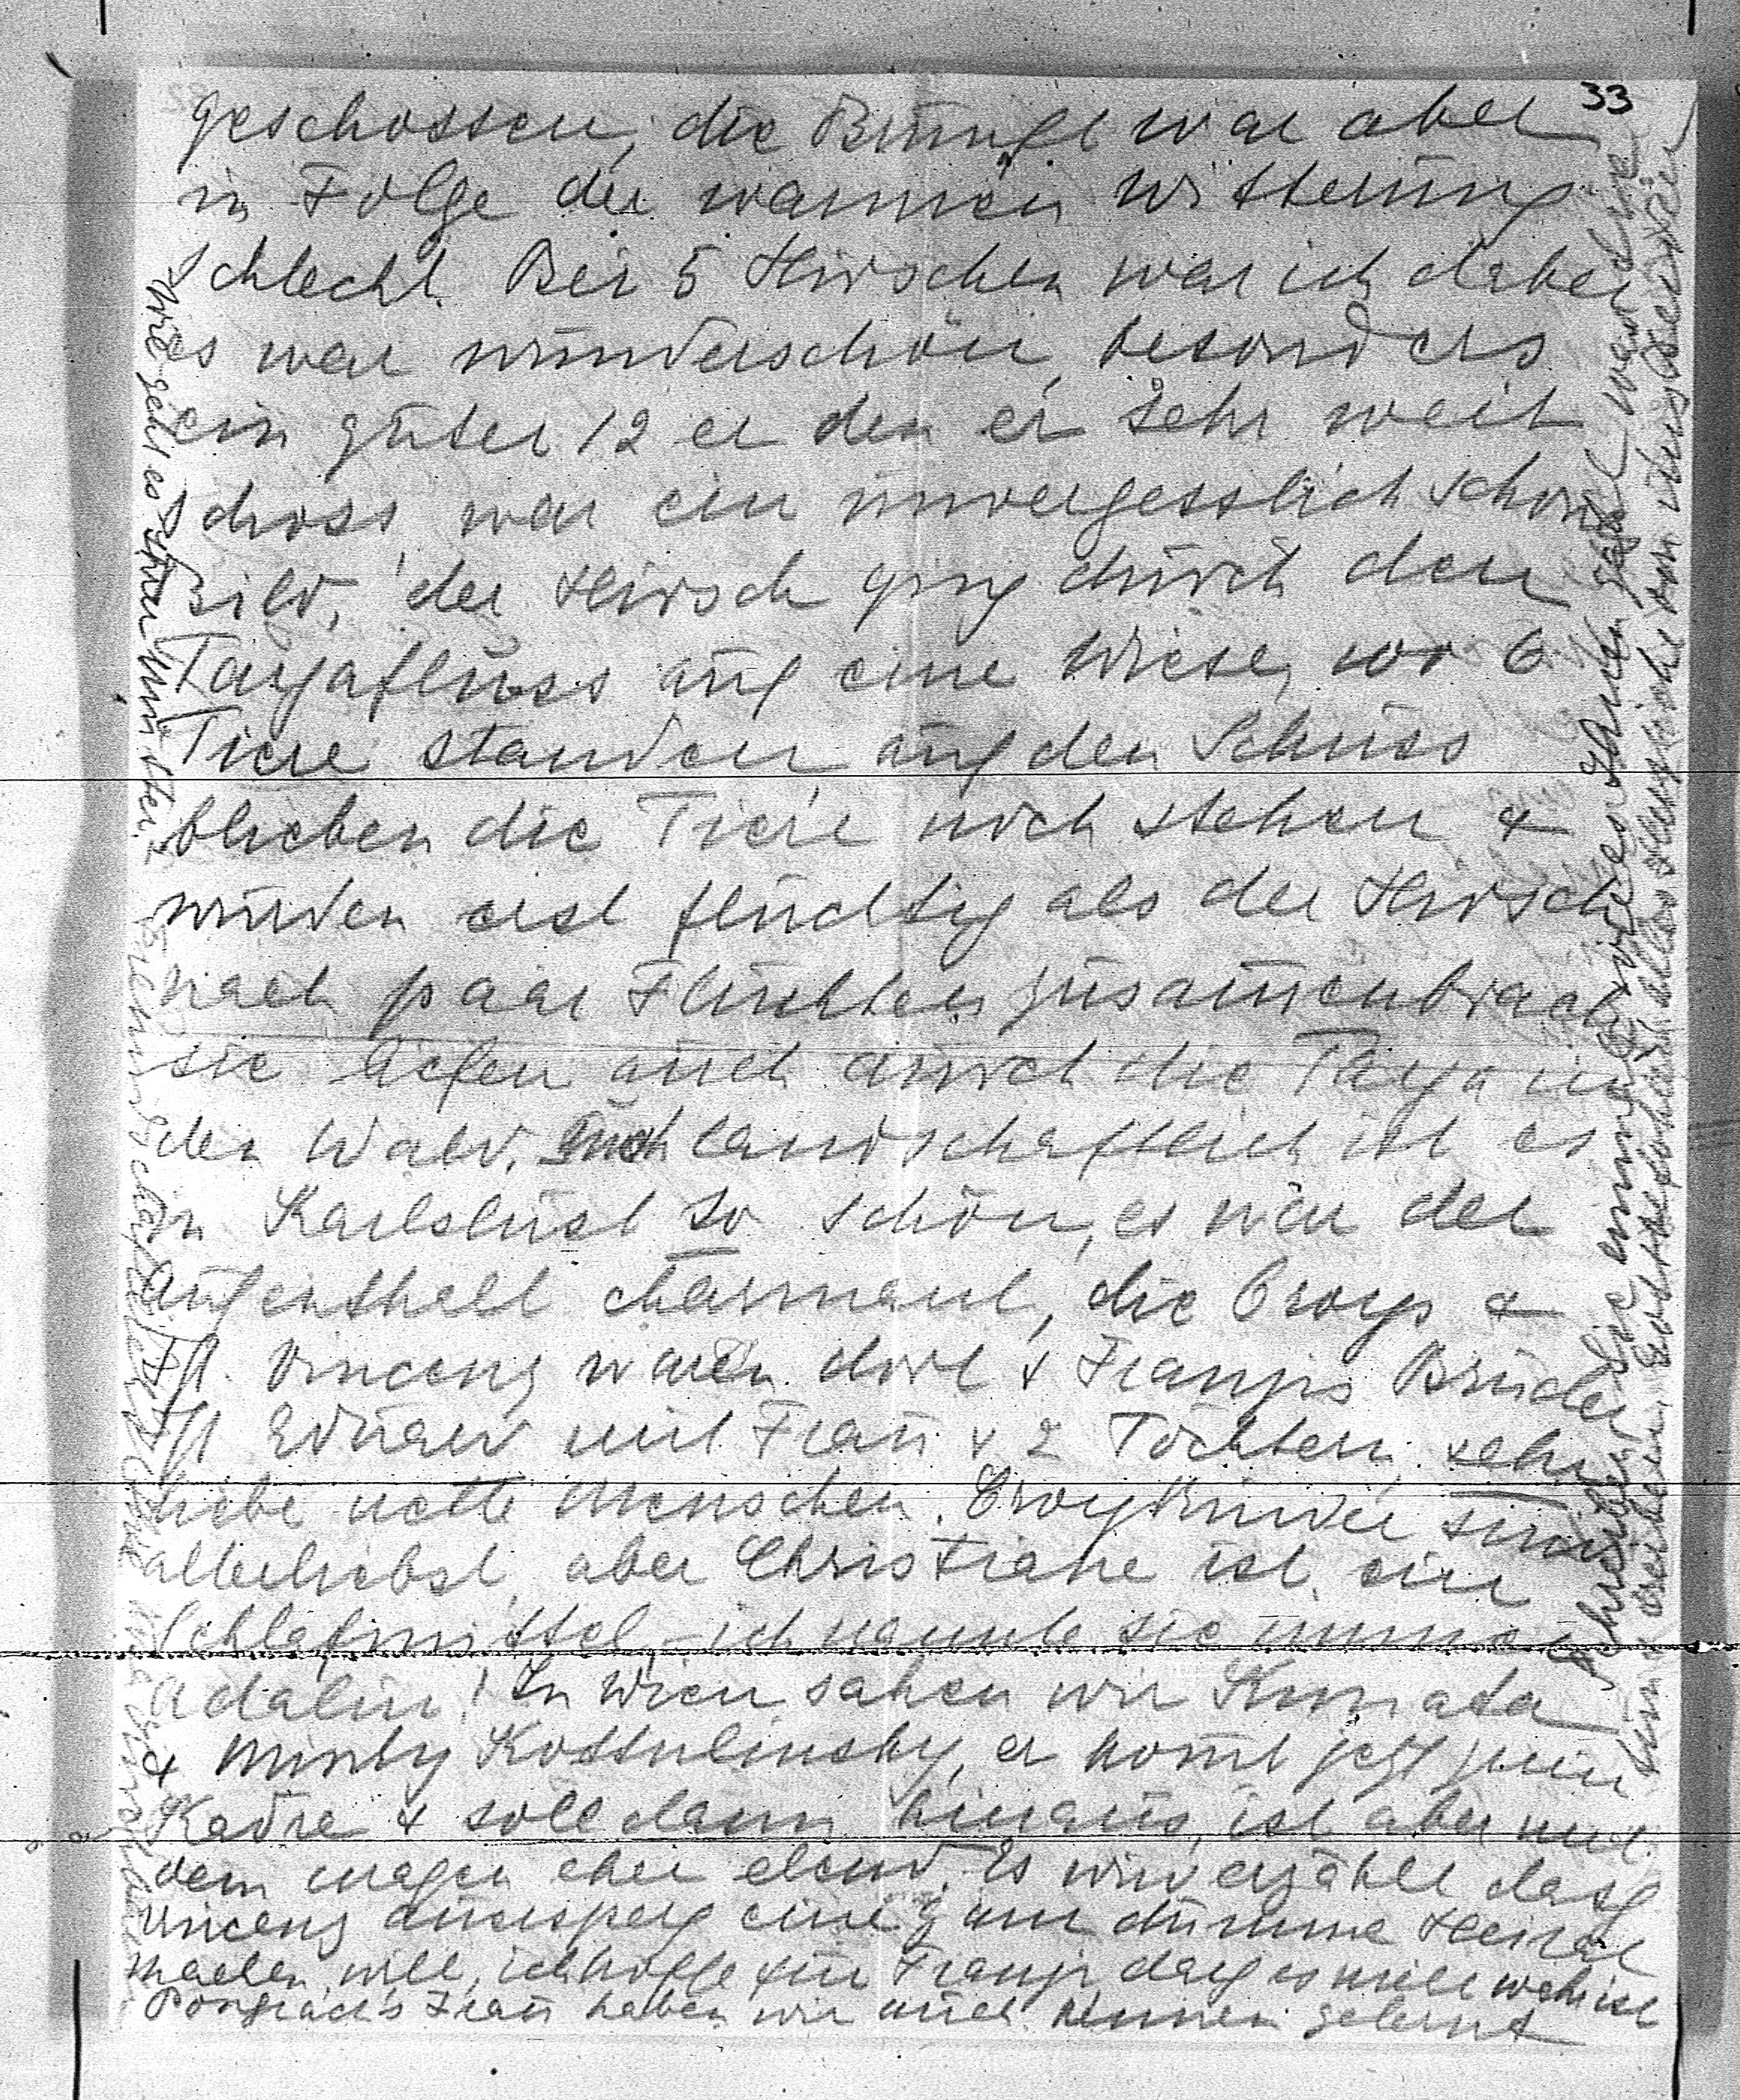 33
geschossen, die Brunft war aber
in Folge der warmen Witterung
schlecht. Bei 5 Hirschen war ich dabei
es war wunderschön, besonders
ein guter 12 er den er sehr weit
schoss, war ein unvergesslich schönes
Bild, der Hirsch ging durch den
Tayafluss auf eine Wiese, wo 6
Tiere standen auf den Schuss
blieben die Tiere noch stehen &
wurden erst flüchtig als der Hirsch
nach paar Fluchten zusammenbrach
sie liefen auch durch die Taya in
den Wald. Auch landschaftlich ist es
in Karlslust so schön, es war der
Aufenthalt charmant, die Croys &
Vincenz waren dort & Franzis Bruder
Eduard mit Frau & 2 Töchtern, sehr
liebe nette Menschen. Croy Kinder sind
allerliebst, aber Christiane ist ein
Schlafmittel – ich nannte sie immer
Adalin! In Wien sahen wir
& Kottulinsky, er kommt jetzt zum
Kadre & soll dann hinaus, ist aber mit
dem Magen eher elend. Es wird erzählt dass
Vincenz Auersperg eine ganz dumme Heirat
machen will, ich hoffe für Franzi dass es nicht wahr ist
Frau haben wir auch kennen gelernt
Wie geht es Ihrer Mutter?
schreiben Sie einmal wieder Ihrer